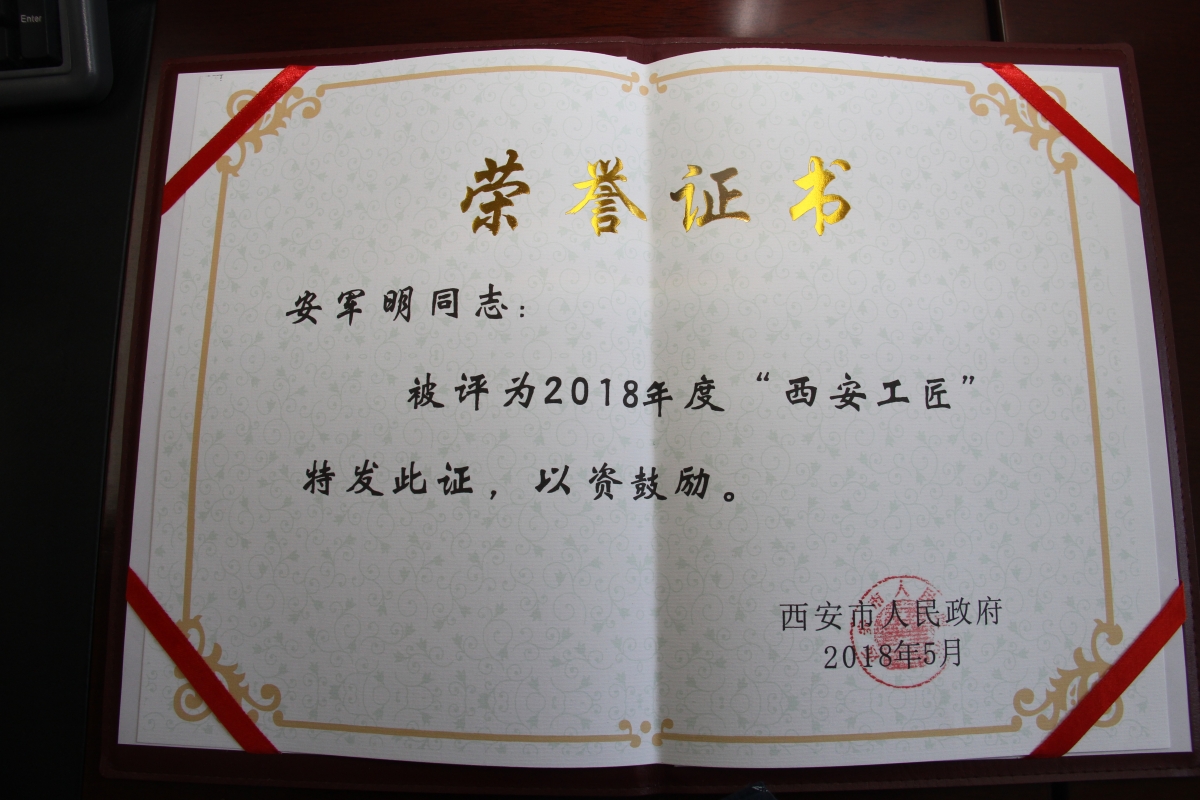 Enter
荣誉证书
安军明同志：
被评为2018年度“西安工匠”
特发此证，以资鼓励。
西安市人民政府
2018年5月